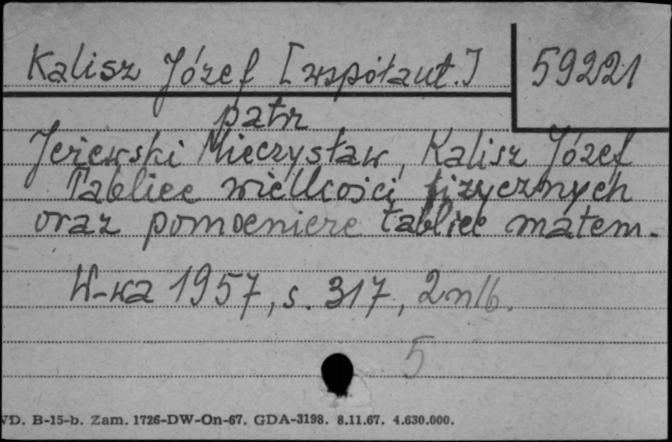 Kalisz Józef [współaut.] 59221
patrz
Jeżewski Mieczysław, Kalisz Józef
Tablice wielkości fizycznych
oraz pomocnicze tablice matem.
W-wa 1957, s. 317, 2 nlb.
5
VD. B-15-b. Zam. 1726-DW-On-67. GDA-3198. 8.11.67. 4.630.000.